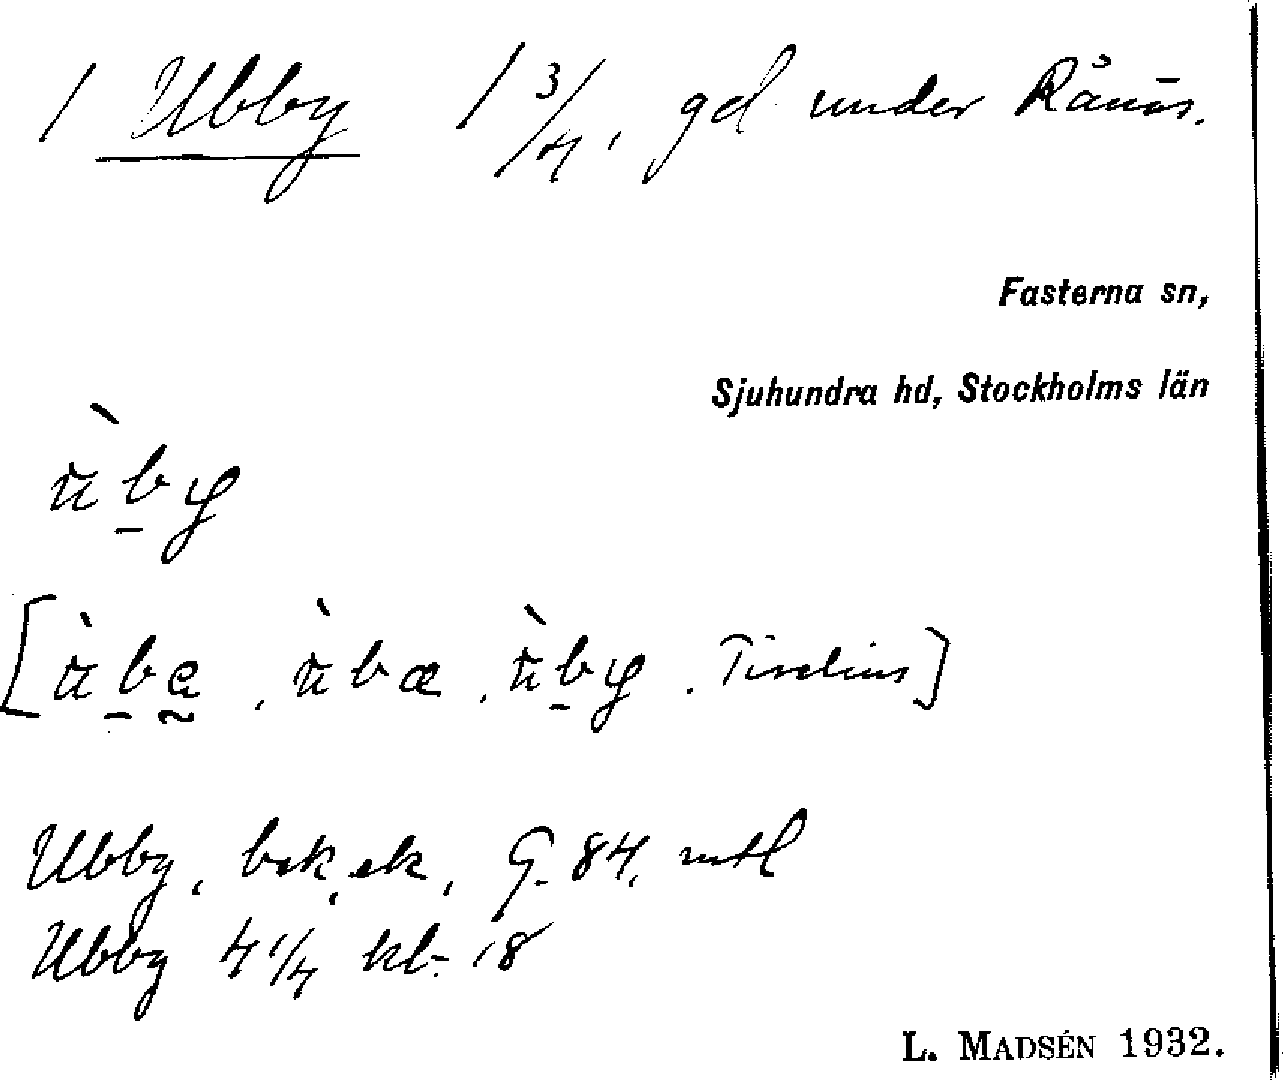 1 Ubby 1 3/4, gd under Rånäs.
Fasterna sn,
Sjuhundra hd, Stockholms län
ùby
[ùbe, ùbæ, ùby. Tiselius]
Ubby, bsk, ek, G. 84, mtl
Ubby 4 1/4 kl. 18
L. MADSÉN 1932.